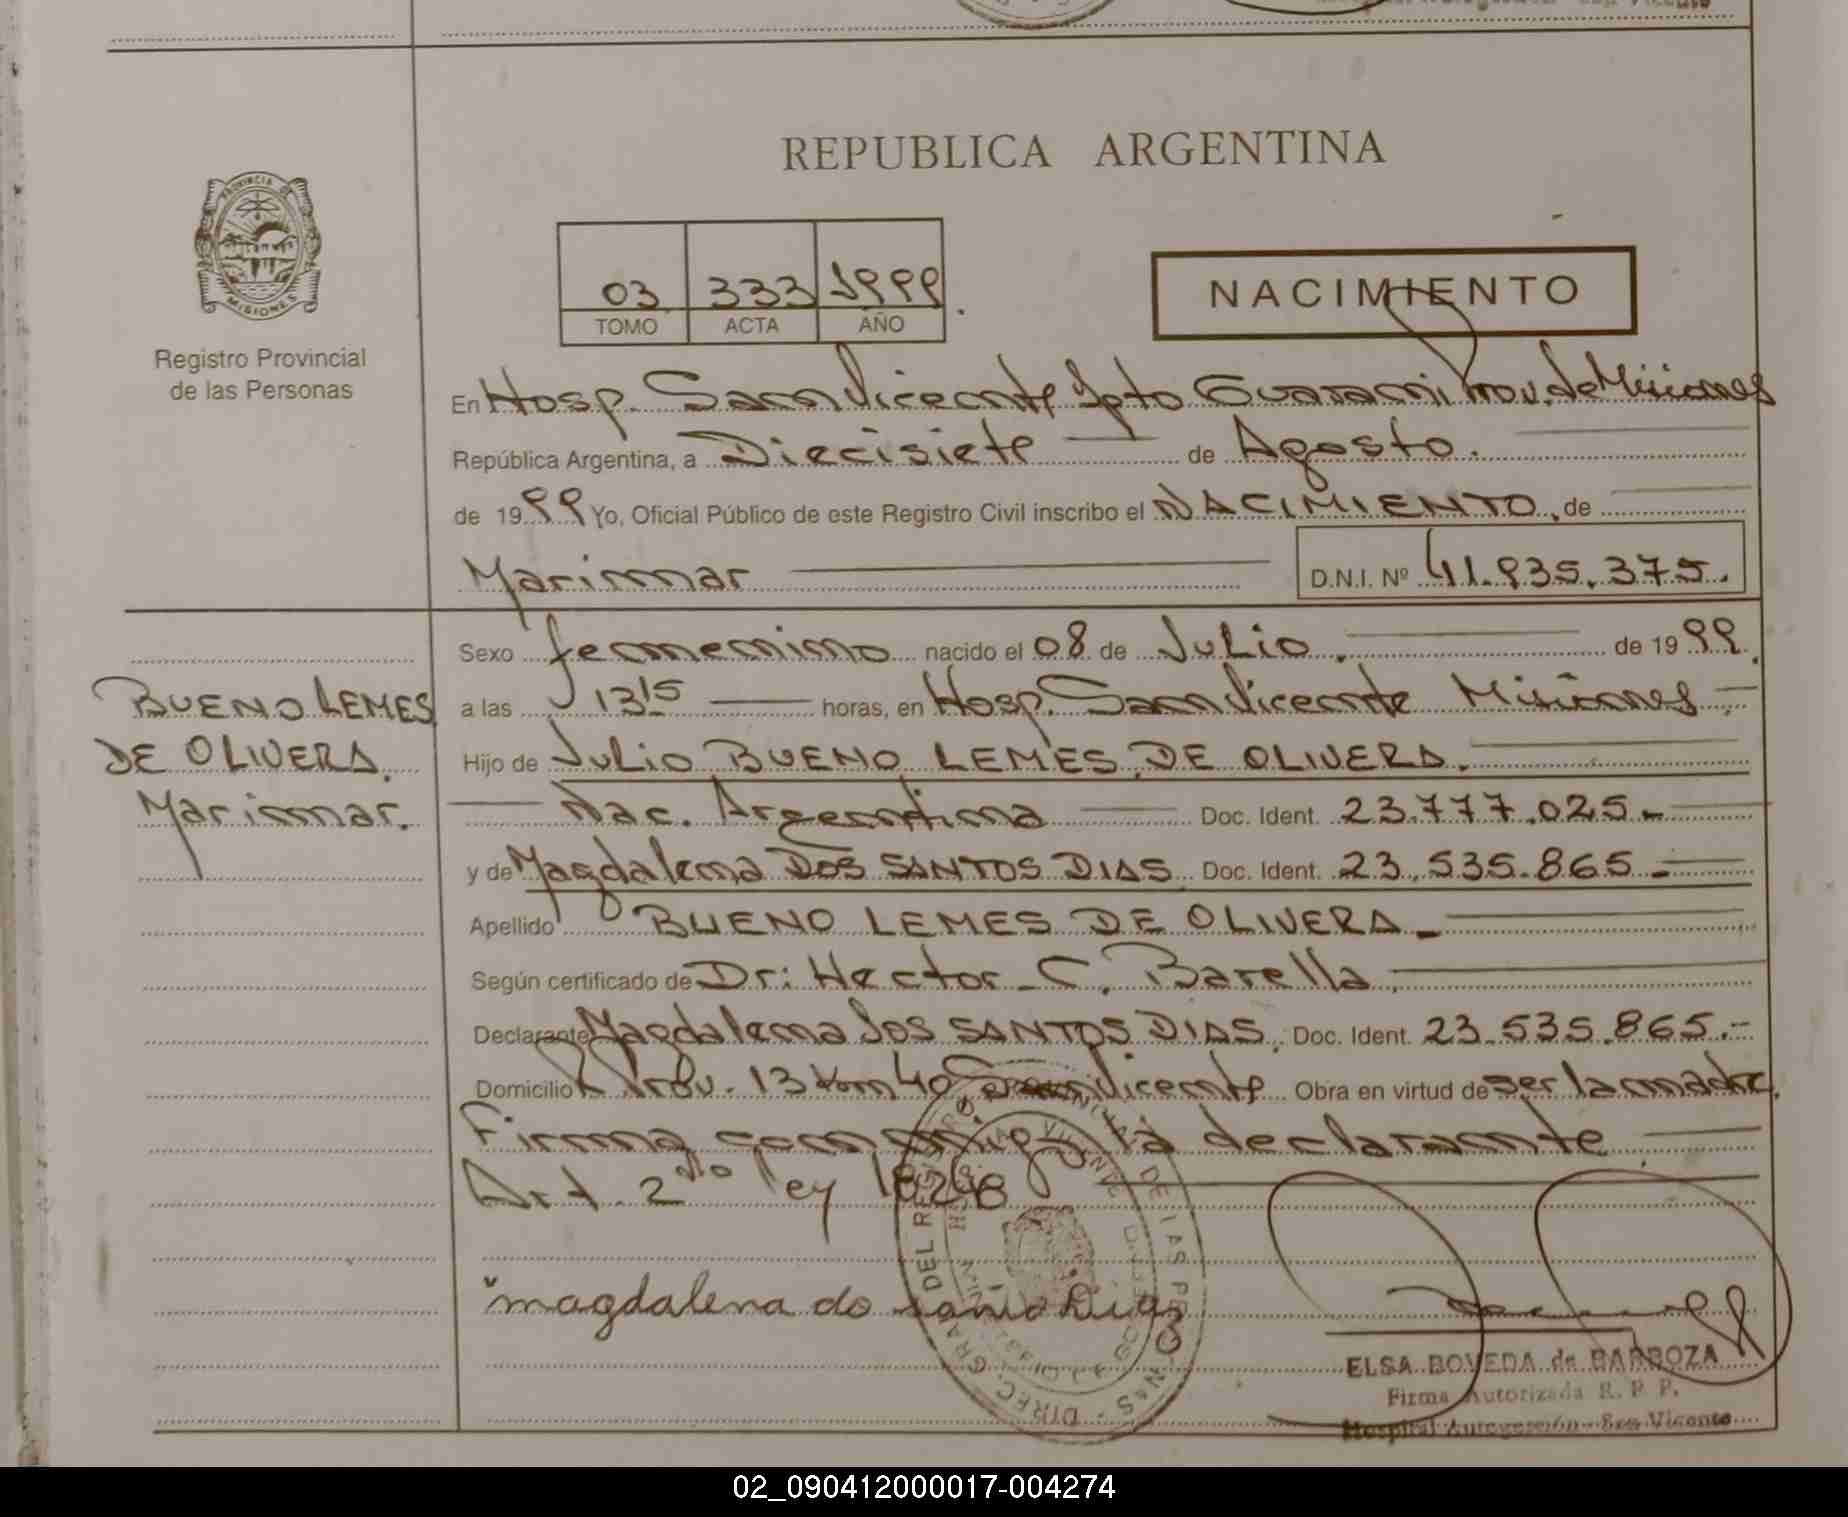 REPUBLICA ARGENTINA
PROVINCIA DE
MISIONES
Registro Provincial
de las Personas
03 333 1999
TOMO ACTA AÑO
NACIMIENTO
En Hosp. San Vicente Dpto Guarani Prov. de Misiones
República Argentina, a Diecisiete de Agosto.
de 1999 Yo, Oficial Público de este Registro Civil inscribo el NACIMIENTO, de
Marinnar D.N.I. Nº 41.935.375.
Sexo femenino nacido el 08 de Julio. de 1999.
a las 13 15 horas, en Hosp. San Vicente Misiones
BUENO LEMES
DE OLIVERA.
Marinnar.
Hijo de Julio BUENO LEMES DE OLIVERA.
Nac. Argentina Doc. Ident. 23.777.025.-
y de Magdalena DOS SANTOS DIAS Doc. Ident. 23.535.865.-
Apellido BUENO LEMES DE OLIVERA.-
Según certificado de Dr: Hector C. Barella.
Declarante Magdalena Dos SANTOS DIAS. Doc. Ident. 23.535.865.-
Domicilio R. Prov. 13 Km 40 San Vicente Obra en virtud de ser la madre.
Firma conmigo la declarante
Art. 2do Ley 18248
magdalena do santo Dias
ELSA BOVEDA de BARBOZA
Firma Autorizada R. P. P.
Hospital Autogestión - San Vicente
02_090412000017-004274